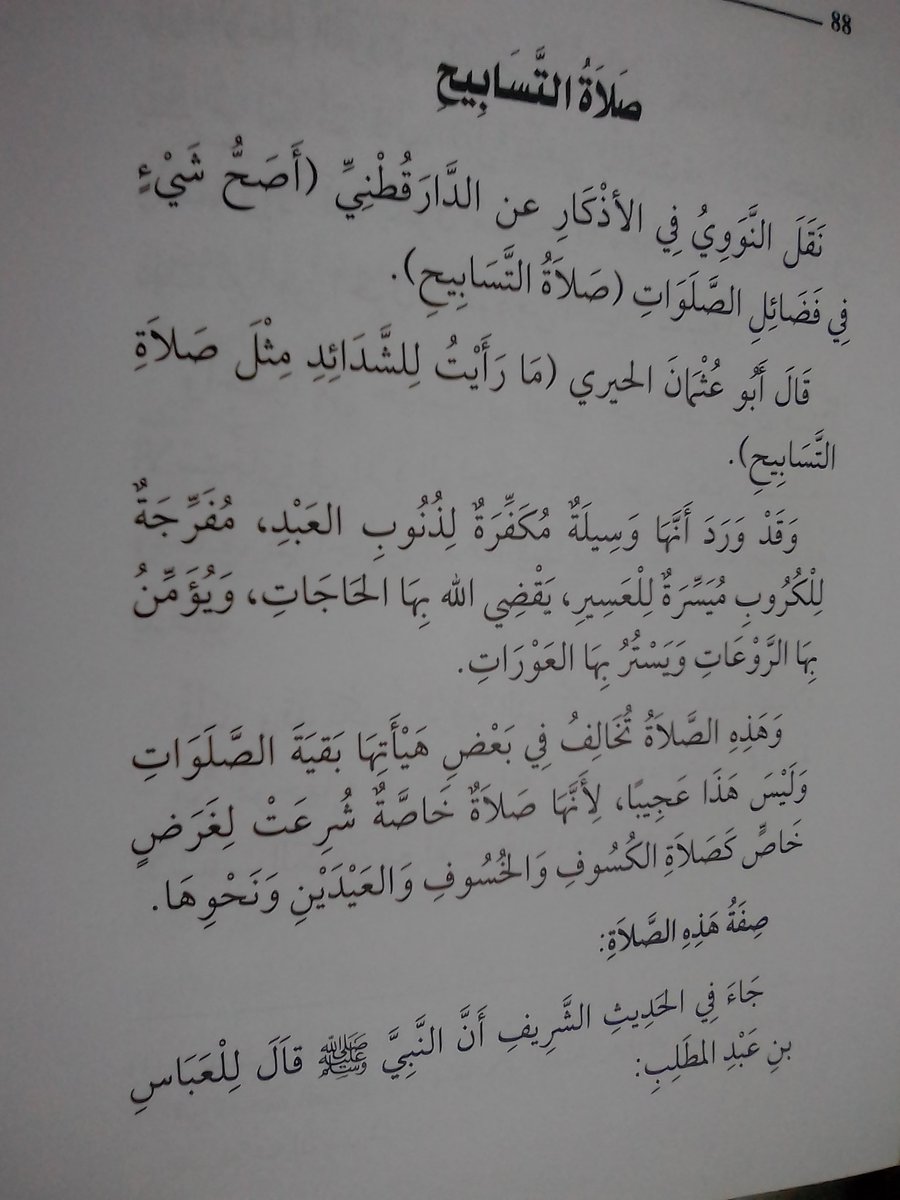 88
صَلَاةُ التَّسَابِيحِ
نَقَلَ النَّوَوِيُّ فِي الأَذْكَارِ عن الدَّارَقُطْنِيِّ (أَصَحُّ شَيْءٍ
فِي فَضَائِلِ الصَّلَوَاتِ (صَلاَةُ التَّسَابِيحِ).
قَالَ أَبُو عُثْمَانَ الحيري (مَا رَأَيْتُ لِلشَّدَائِدِ مِثْلَ صَلاَةِ
التَّسَابِيحِ).
وَقَدْ وَرَدَ أَنَّهَا وَسِيلَةٌ مُكَفِّرَةٌ لِذُنُوبِ العَبْدِ، مُفَرِّجَةٌ
لِلْكُرُوبِ مُيَسِّرَةٌ لِلْعَسِيرِ، يَقْضِي الله بِهَا الحَاجَاتِ، وَيُؤَمِّنُ
بِهَا الرَّوْعَاتِ وَيَسْتُرُ بِهَا العَوْرَاتِ.
وَهَذِهِ الصَّلاَةُ تُخَالِفُ فِي بَعْضِ هَيْأَتِهَا بَقيَةَ الصَّلَوَاتِ
وَلَيْسَ هَذَا عَجِيبًا، لِأَنَّهَا صَلاَةٌ خَاصَّةٌ شُرِعَتْ لِغَرَضٍ
خَاصٍّ كَصَلاَةِ الكُسُوفِ وَالخُسُوفِ وَالعَيْدَيْنِ وَنَحْوِهَا.
صِفَةُ هَذِهِ الصَّلاَةِ:
جَاءَ فِي الحَدِيثِ الشَّرِيفِ أَنَّ النَّبِيَّ ﷺ قاَلَ لِلْعَبَاسِ
بنِ عَبْدِ المطَلِبِ: